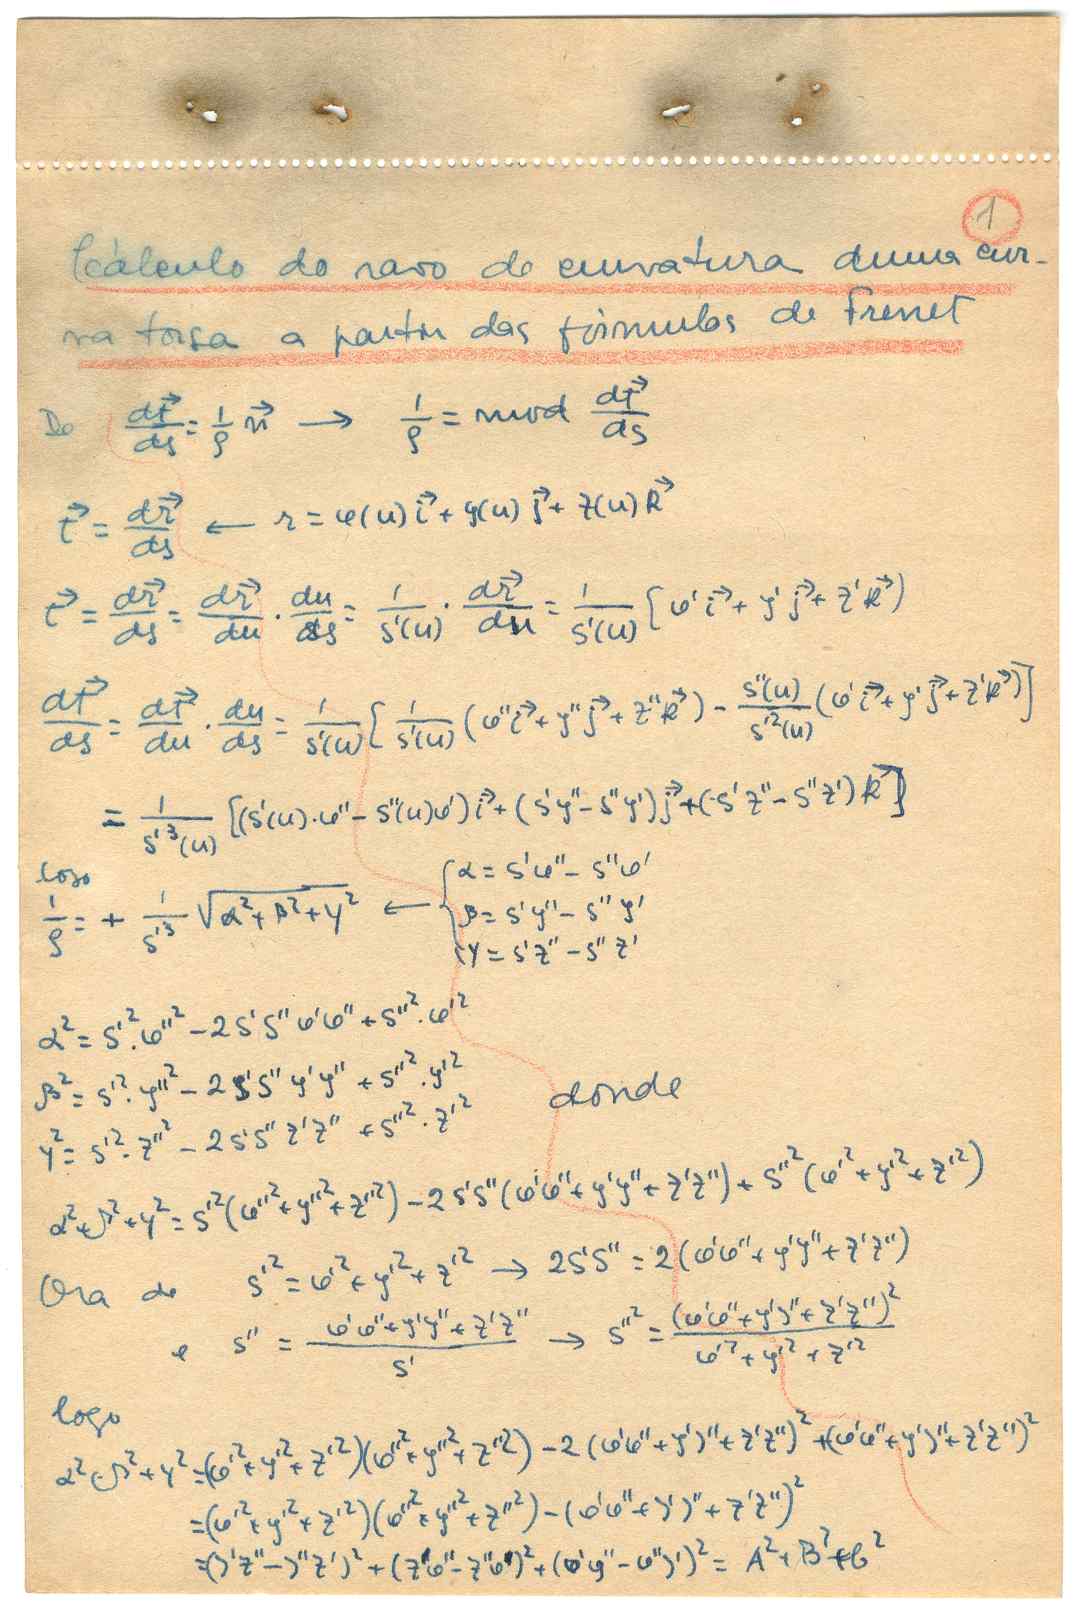 1
Cálculo do raio de curvatura duma cur-
va torsa a partir das fórmulas de Frenet
De dt⃗/ds = 1/ρ n⃗ → 1/ρ = mod dt⃗/ds
t⃗ = dr⃗/ds ← r = x(u) i⃗ + y(u) j⃗ + z(u) k⃗
t⃗ = dr⃗/ds = dr⃗/du · du/ds = 1/s'(u) · dr⃗/du = 1/s'(u) [x' i⃗ + y' j⃗ + z' k⃗)
dt⃗/ds = dt⃗/du · du/ds = 1/s'(u) [1/s'(u) (x'' i⃗ + y'' j⃗ + z'' k⃗) - s''(u)/s'²(u) (x' i⃗ + y' j⃗ + z' k⃗)]
= 1/s'³(u) [(s'(u)·x'' - s''(u)x') i⃗ + (s'y'' - s''y') j⃗ + (s'z'' - s''z') k⃗]
logo
1/ρ = + 1/s'³ √(α² + β² + γ²) ← { α = s'x'' - s''x'
β = s'y'' - s''y'
γ = s'z'' - s''z'
α² = s'²·x''² - 2s's''x'x'' + s''²·x'²
β² = s'²·y''² - 2s's''y'y'' + s''²·y'²
donde
γ² = s'²·z''² - 2s's''z'z'' + s''²·z'²
α² + β² + γ² = s'²(x''² + y''² + z''²) - 2s's''(x'x'' + y'y'' + z'z'') + s''²(x'² + y'² + z'²)
Ora de s'² = x'² + y'² + z'² → 2s's'' = 2(x'x'' + y'y'' + z'z'')
e s'' = (x'x'' + y'y'' + z'z'')/s' → s''² = (x'x'' + y'y'' + z'z'')²/(x'² + y'² + z'²)
logo
α² + β² + γ² = (x'² + y'² + z'²)(x''² + y''² + z''²) - 2(x'x'' + y'y'' + z'z'')² + (x'x'' + y'y'' + z'z'')²
= (x'² + y'² + z'²)(x''² + y''² + z''²) - (x'x'' + y'y'' + z'z'')²
= (y'z'' - y''z')² + (z'x'' - z''x')² + (x'y'' - x''y')² = A² + B² + C²